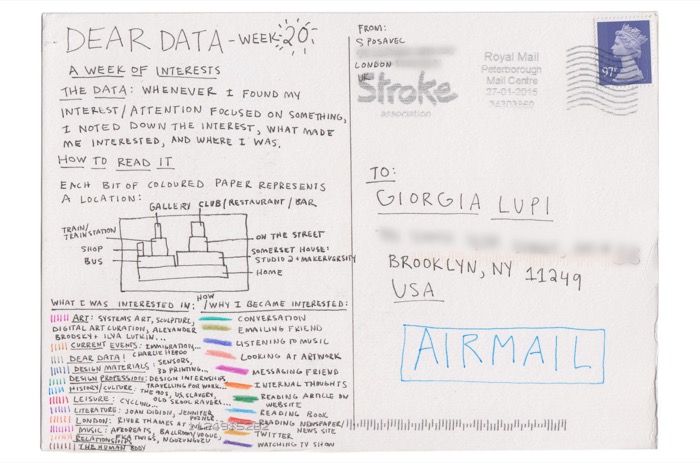 DEAR DATA - WEEK 20
A WEEK OF INTERESTS
THE DATA: WHENEVER I FOUND MY
INTEREST/ATTENTION FOCUSED ON SOMETHING,
I NOTED DOWN THE INTEREST, WHAT MADE
ME INTERESTED, AND WHERE I WAS.
HOW TO READ IT
EACH BIT OF COLOURED PAPER REPRESENTS
A LOCATION:
GALLERY CLUB/RESTAURANT/BAR
TRAIN/
TRAIN STATION
SHOP
BUS
ON THE STREET
SOMERSET HOUSE:
STUDIO 2 + MAKERVERSITY
HOME
WHAT I WAS INTERESTED IN:
ART: SYSTEMS ART, SCULPTURE,
DIGITAL ART CURATION, ALEXANDER
BRODSKY + ILYA UTKIN...
CURRENT EVENTS: IMMIGRATION...
CHARLIE HEBDO
DEAR DATA!
DESIGN MATERIALS: SENSORS,
3D PRINTING...
DESIGN PROFESSION: DESIGN INTERNSHIPS
TRAVELLING FOR WORK...
HISTORY/CULTURE: THE 90S, US SLAVERY,
OLD SKOOL RAVERS...
LEISURE: CYCLING...
LITERATURE: JOAN DIDION, JENNIFER
LONDON: RIVER THAMES AT
MUSIC: AFROBEATS, BALLROOM/VOGUE,
FKA TWIGS, NGUZUNGUZU
RELATIONSHIPS
THE HUMAN BODY
HOW/WHY I BECAME INTERESTED:
CONVERSATION
EMAILING FRIEND
LISTENING TO MUSIC
LOOKING AT ARTWORK
MESSAGING FRIEND
INTERNAL THOUGHTS
READING ARTICLE ON
WEBSITE
READING BOOK
READING NEWSPAPER/
NEWS SITE
TWITTER
WATCHING TV SHOW
FROM:
S POSAVEC
LONDON
UK
Stroke
association
Royal Mail
Peterborough
Mail Centre
27-01-2015
97P
TO:
GIORGIA LUPI
BROOKLYN, NY 11249
USA
AIRMAIL